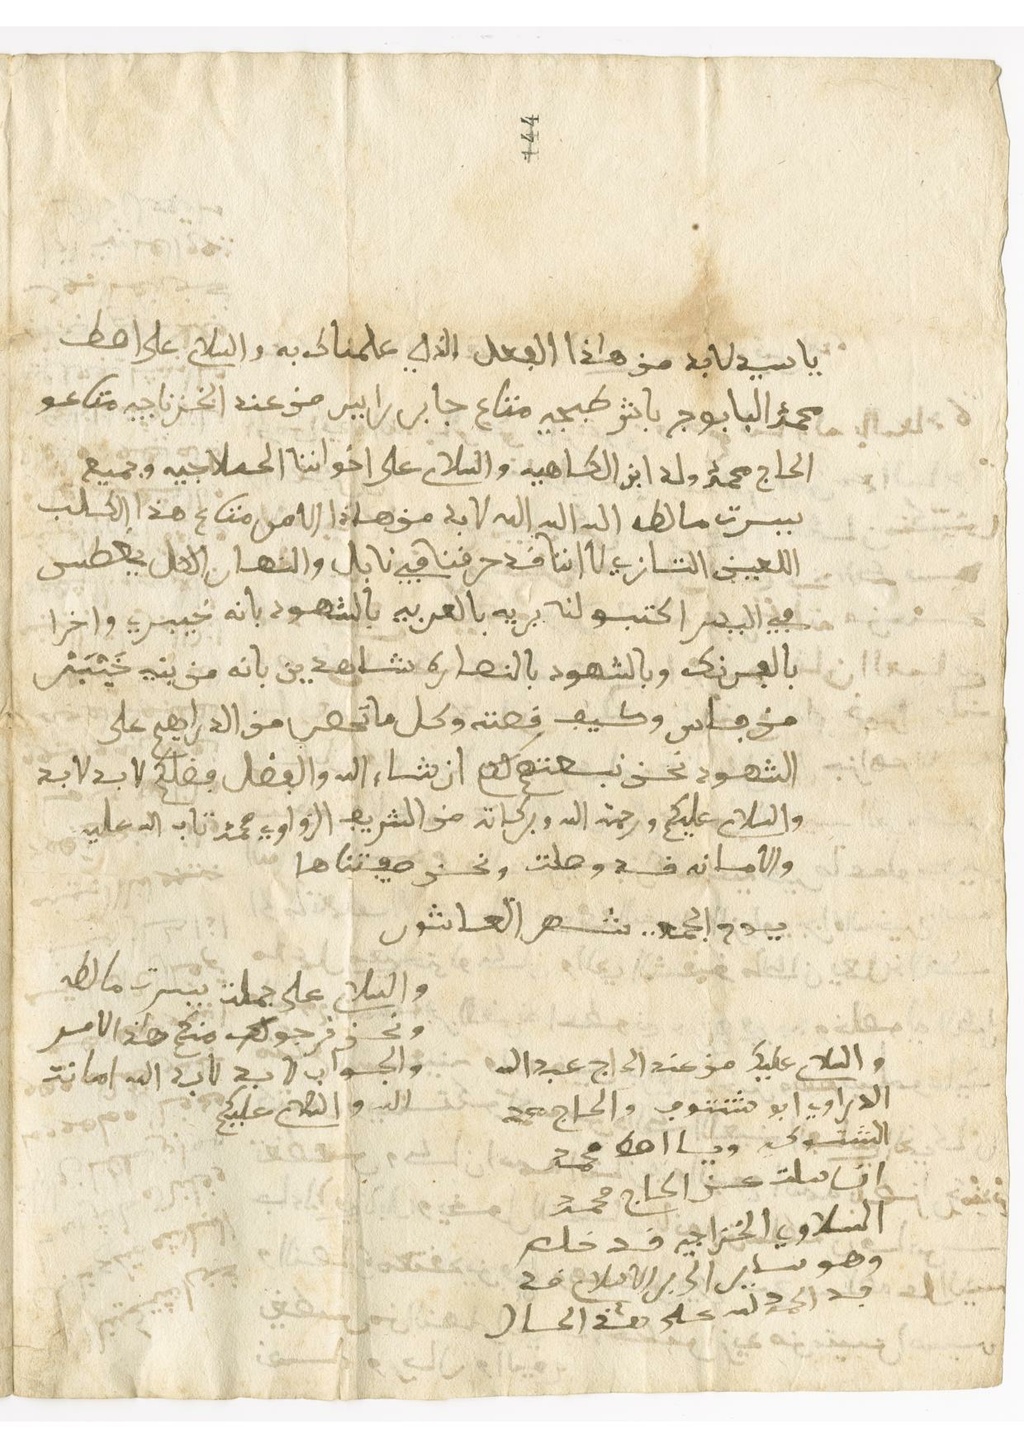 144
يا سيد لابد من هاذا الفعل الذي علمناك به والسلام على اصطى
محمد البابوج باش طبجي متاع جابر رايس من عند الخزناجي متاعو
الحاج محمد ولد ابن الكاهيه والسلام على اخواننا الحملاجيه وجميع
بيرت مالطه الله الله الله لابد من هاذا الامر متاع هذا الكلب
اللعين لاننا قد حرقنا في نابل والنصار الاول يعطس
في البير اكتبو لنا بريه بالعربيه بالشهود بانه خيبري واخرا
بالفرنك وبالشهود بالنصاره شاهدين بانه من بني خيبر
من فاس وكيف قصته وكل ما تخصر من الدراهم على
الشهود نحن نبعتهم لكم ان شاء الله والفضل فضلكم لابد لابد
والسلام عليكم ورحمة الله وبركاته من الشريف الزواوي محمد تاب الله عليه
والامانه قد وصلت ونحن
يوم الجمعه شهر العاشور
والسلام على جملت بيرت مالطه
ونحن نرجو منكم هذا الامر
والجواب لابد لابد الله امانت
الله والسلام عليكم
والسلام عليكم من عند الحاج عبد الله
الدراوي ابو شنتوف والحاج محمد
الشتوكي ويا اصطى محمد
انا سلت عن الحاج محمد
السلاوي الخزناجي قد خلص
وهو ساير الى بر الاسلام قد
قد الحمد لله على هذا الحال